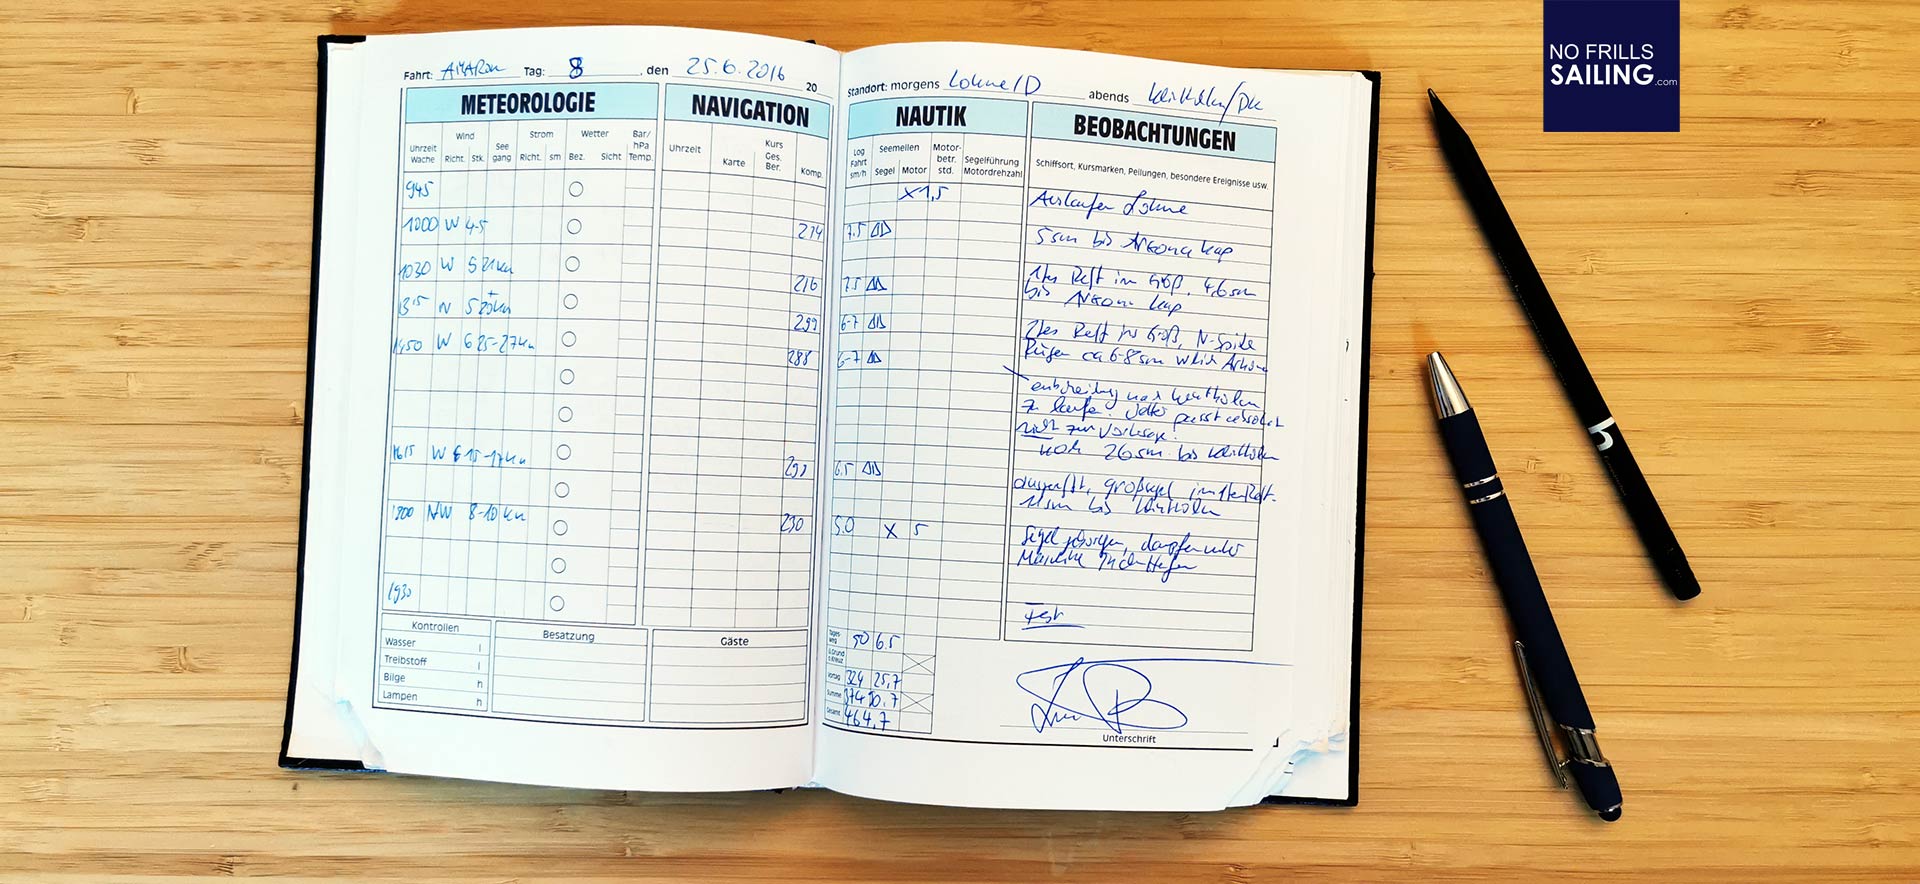 NO FRILLS
SAILING.com
Fahrt: AMARON Tag: 8, den 25.6.2016 20
METEOROLOGIE NAVIGATION
Wind Strom Wetter Bar/ hPa Temp.
Uhrzeit Wache Richt. Stk. See gang Richt. sm Bez. Sicht
Uhrzeit Karte Kurs Ges. Ber. Komp.
945
1000 W 4-5 274
1030 W 5 21kn 276
1315 N 299
1450 W 6 25-27kn 288
1615 W 6 15-17kn
1800 NW 8-10 kn 230
1930
Kontrollen Besatzung Gäste
Wasser l
Treibstoff l
Bilge h
Lampen h
Standort: morgens Lohme/D abends
NAUTIK BEOBACHTUNGEN
Log Fahrt sm/h Seemeilen Segel Motor Motor- betr. std. Segelführung Motordrehzahl
Schiffsort, Kursmarken, Peilungen, besondere Ereignisse usw.
X 1,5 Auslaufen Lohme
7.5 5 sm bis Arkona Kap
7.5 1tes Reff im Groß, 4,6 sm
bis Arkona Kap
6-7 2tes Reff im Groß, N-Spitze
6-7 Rügen ca 6-8 sm Arkona
zu laufen.
nicht zur Vorhersage.
noch 26 sm bis
6.5 ausgerefft, Großsegel
11 sm bis
5.0 X 5 Segel geborgen, dampfen unter
Maschine in den Hafen
Fest
Tages- weg 50 6.5
Vortag 324 25,7
Summe 374
Gesamt 464,7
Unterschrift